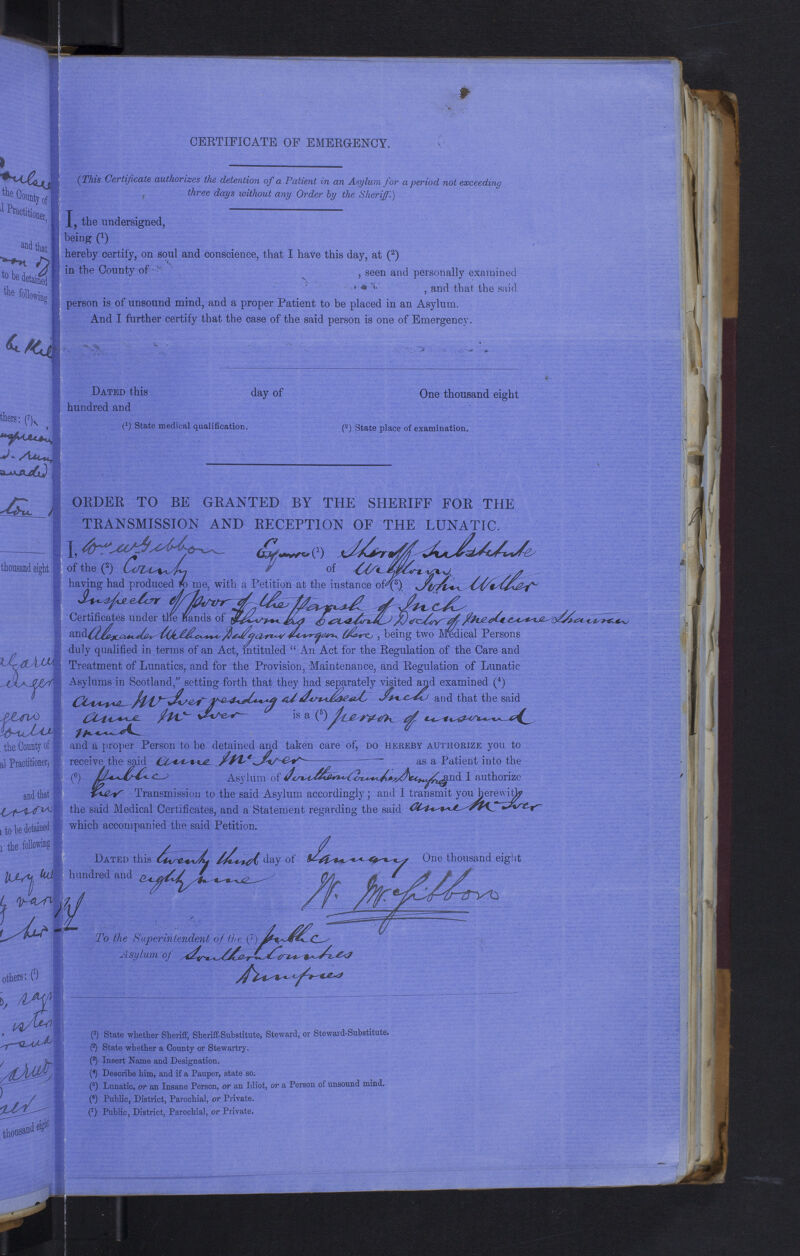 CERTIFICATE OF EMERGENCY.
(This Certificate authorizes the detention of a Patient in an Asylum for a period not exceeding
three days without any Order by the Sheriff.)
I, the undersigned,
being (¹)
hereby certify, on soul and conscience, that I have this day, at (²)
in the County of , seen and personally examined
, and that the said
person is of unsound mind, and a proper Patient to be placed in an Asylum.
And I further certify that the case of the said person is one of Emergency.
DATED this day of One thousand eight
hundred and
(¹) State medical qualification. (²) State place of examination.
ORDER TO BE GRANTED BY THE SHERIFF FOR THE
TRANSMISSION AND RECEPTION OF THE LUNATIC.
I, Wm McGibbon (¹) Sheriff Substitute
of the (²) County of Wigtown
having had produced to me, with a Petition at the instance of (³) John Wither
Inspector of Poor of the Parish of Inch
Certificates under the hands of Thomas Easton Doctor of Medicine Stranraer
and Alexander William Surgeon there, being two Medical Persons
duly qualified in terms of an Act, intituled “ An Act for the Regulation of the Care and
Treatment of Lunatics, and for the Provision, Maintenance, and Regulation of Lunatic
Asylums in Scotland,” setting forth that they had separately visited and examined (⁴)
Anne McIver residing at Soulseat Inch and that the said
Anne McIver is a (⁵) person of unsound
mind
and a proper Person to be detained and taken care of, DO HEREBY AUTHORIZE you to
receive the said Anne McIver as a Patient into the
(⁶) Public Asylum of Southern Counties Dumfries and I authorize
her Transmission to the said Asylum accordingly; and I transmit you herewith
the said Medical Certificates, and a Statement regarding the said Anne McIver
which accompanied the said Petition.
DATED this twenty third day of January One thousand eight
hundred and eighty nine
W. McGibbon
To the Superintendent of the (⁷) public
Asylum of Southern Counties
Dumfries
(¹) State whether Sheriff, Sheriff-Substitute, Steward, or Steward-Substitute.
(²) State whether a County or Stewartry.
(³) Insert Name and Designation.
(⁴) Describe him, and if a Pauper, state so.
(⁵) Lunatic, or an Insane Person, or an Idiot, or a Person of unsound mind.
(⁶) Public, District, Parochial, or Private.
(⁷) Public, District, Parochial, or Private.